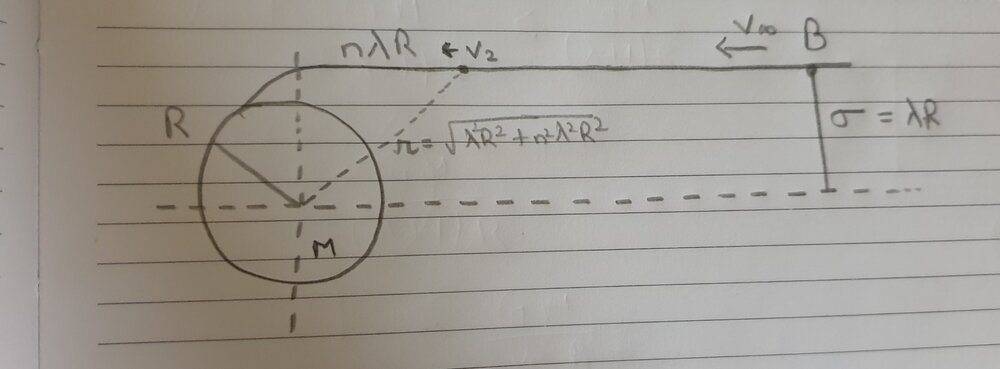 V∞
nλR
V₂
B
R
r = √λ²R² + n²λ²R²
σ = λR
M